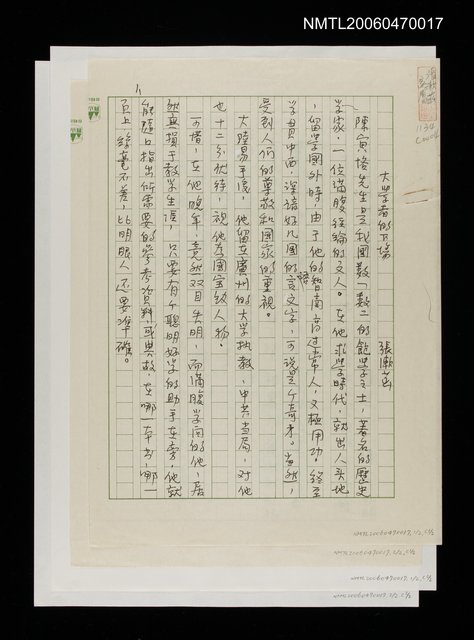 NMTL20060470017
大学者的下場
張漱菡
陳寅恪先生是我國数一数二的飽学之士，著名的歷史
学家，一位滿腹経綸的文人。在他求学時代，就出人头地
，留学國外時，由于他的智商高过常人，又極用功。終至
学貫中西，深諳好几國的語言文字，可說是个奇才。当然，
受到人们的尊敬和國家的重視。
大陸易手後，他留在廣州的大学执教，中共当局，对他
也十二分优待，視他為國宝級人物。
可惜，在他晚年，竟然双目失明，而滿腹学问的他，居
然無損于教学生涯，只要有个聰明好学的助手在旁，他就
能隨口指出所需要的參考資料，或典故，在哪一本书，哪一
頁上，絲毫不差，比明眼人还要準確。
1
NMTL20060470017, 1/2, C1/2
NMTL20060470017, 1/2, C1/2
NMTL20060470017, 1/2, C1/2
NMTL20060470017, 1/2, C1/2